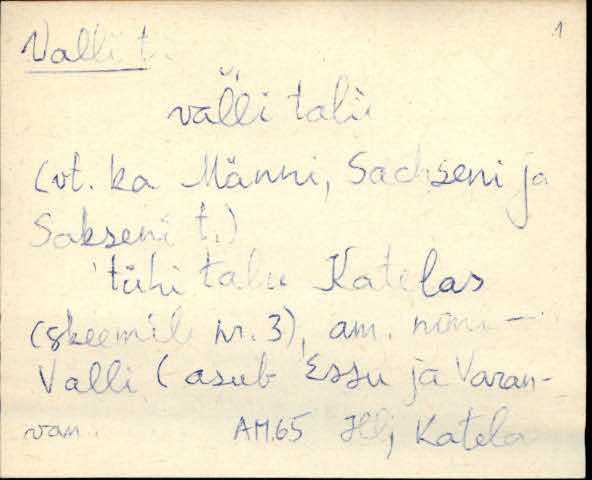 1
Valli t.
vălli talu
(vt. ka Männi, Sachseni ja
Sakseni t.)
tühi talu Katelas
(skeemil nr. 3), am. nimi –
Valli (asub Essu ja Varan-
AM.65 Hlj, Katela